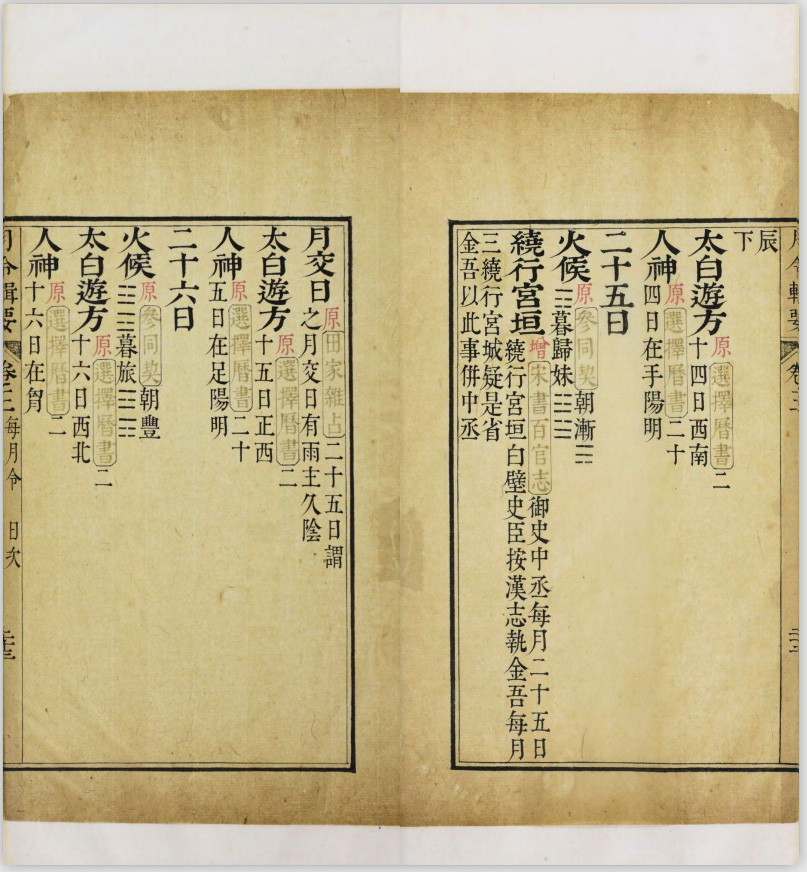 月令輯要　卷三
辰
下
太白遊方原選擇曆書二
十四日西南
人神原選擇曆書二十
四日在手陽明
二十五日
火候原參同契朝漸☴
☶暮歸妹☳☱
繞行宮垣增宋書百官志御史中丞每月二十五日
繞行宮垣白壁史臣按漢志執金吾每月
三繞行宮城疑是省
金吾以此事併中丞
月交日原田家雜占二十五日謂
之月交日有雨主久陰
太白遊方原選擇曆書二
十五日正西
人神原選擇曆書二十
五日在足陽明
二十六日
火候原參同契朝豐
☳☲暮旅☲☶
太白遊方原選擇曆書二
十六日西北
人神原選擇曆書二
十六日在胷
月令輯要　卷三　每月令　日次